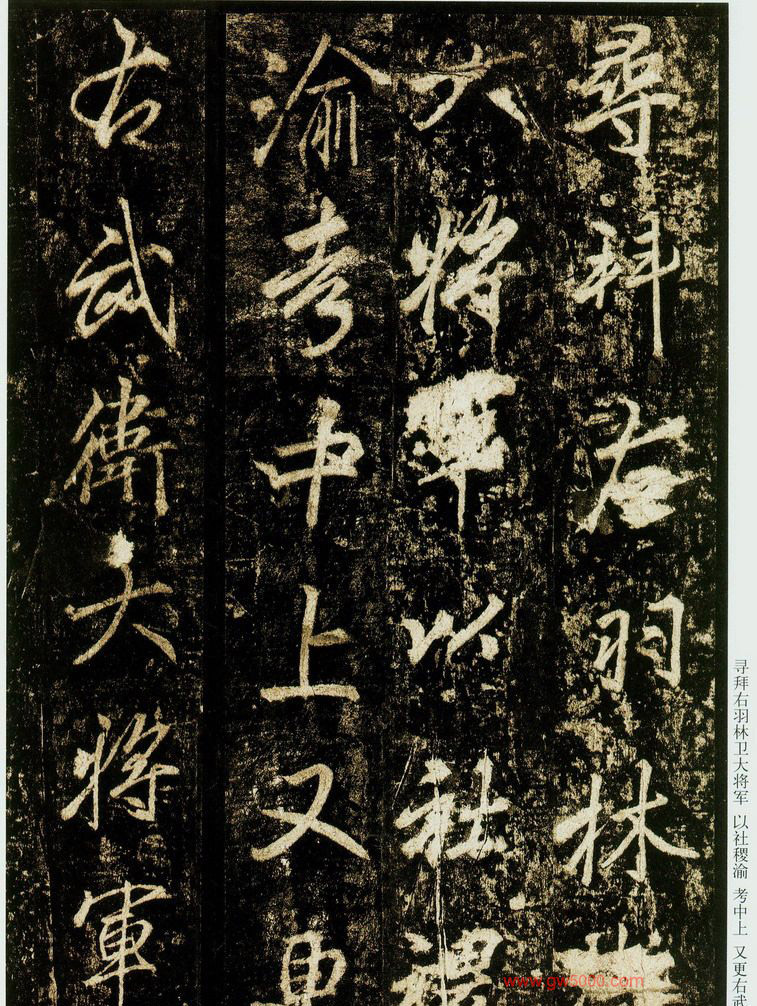 寻拜右羽林卫大将军 以社稷渝 考中上 又更右武
尋拜右羽林
大將軍以社
渝考中上又更
右武衛大將軍
www.gw5000.com